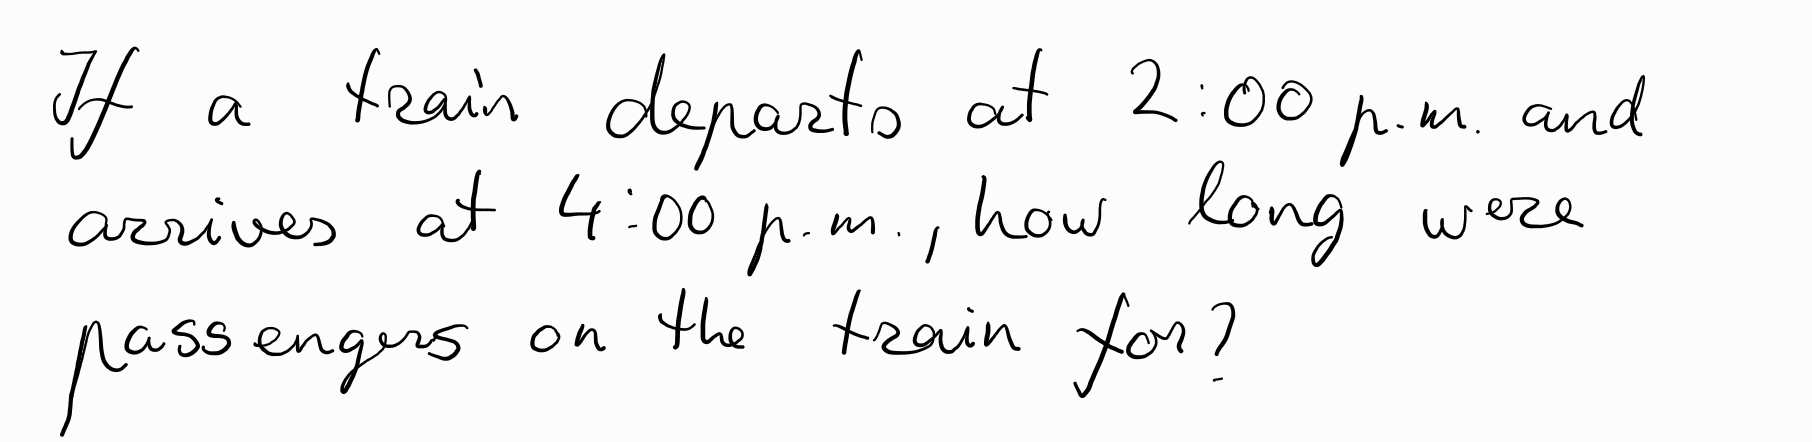 If a train departs at 2:00 p.m. and
arrives at 4:00 p.m., how long were
passengers on the train for?